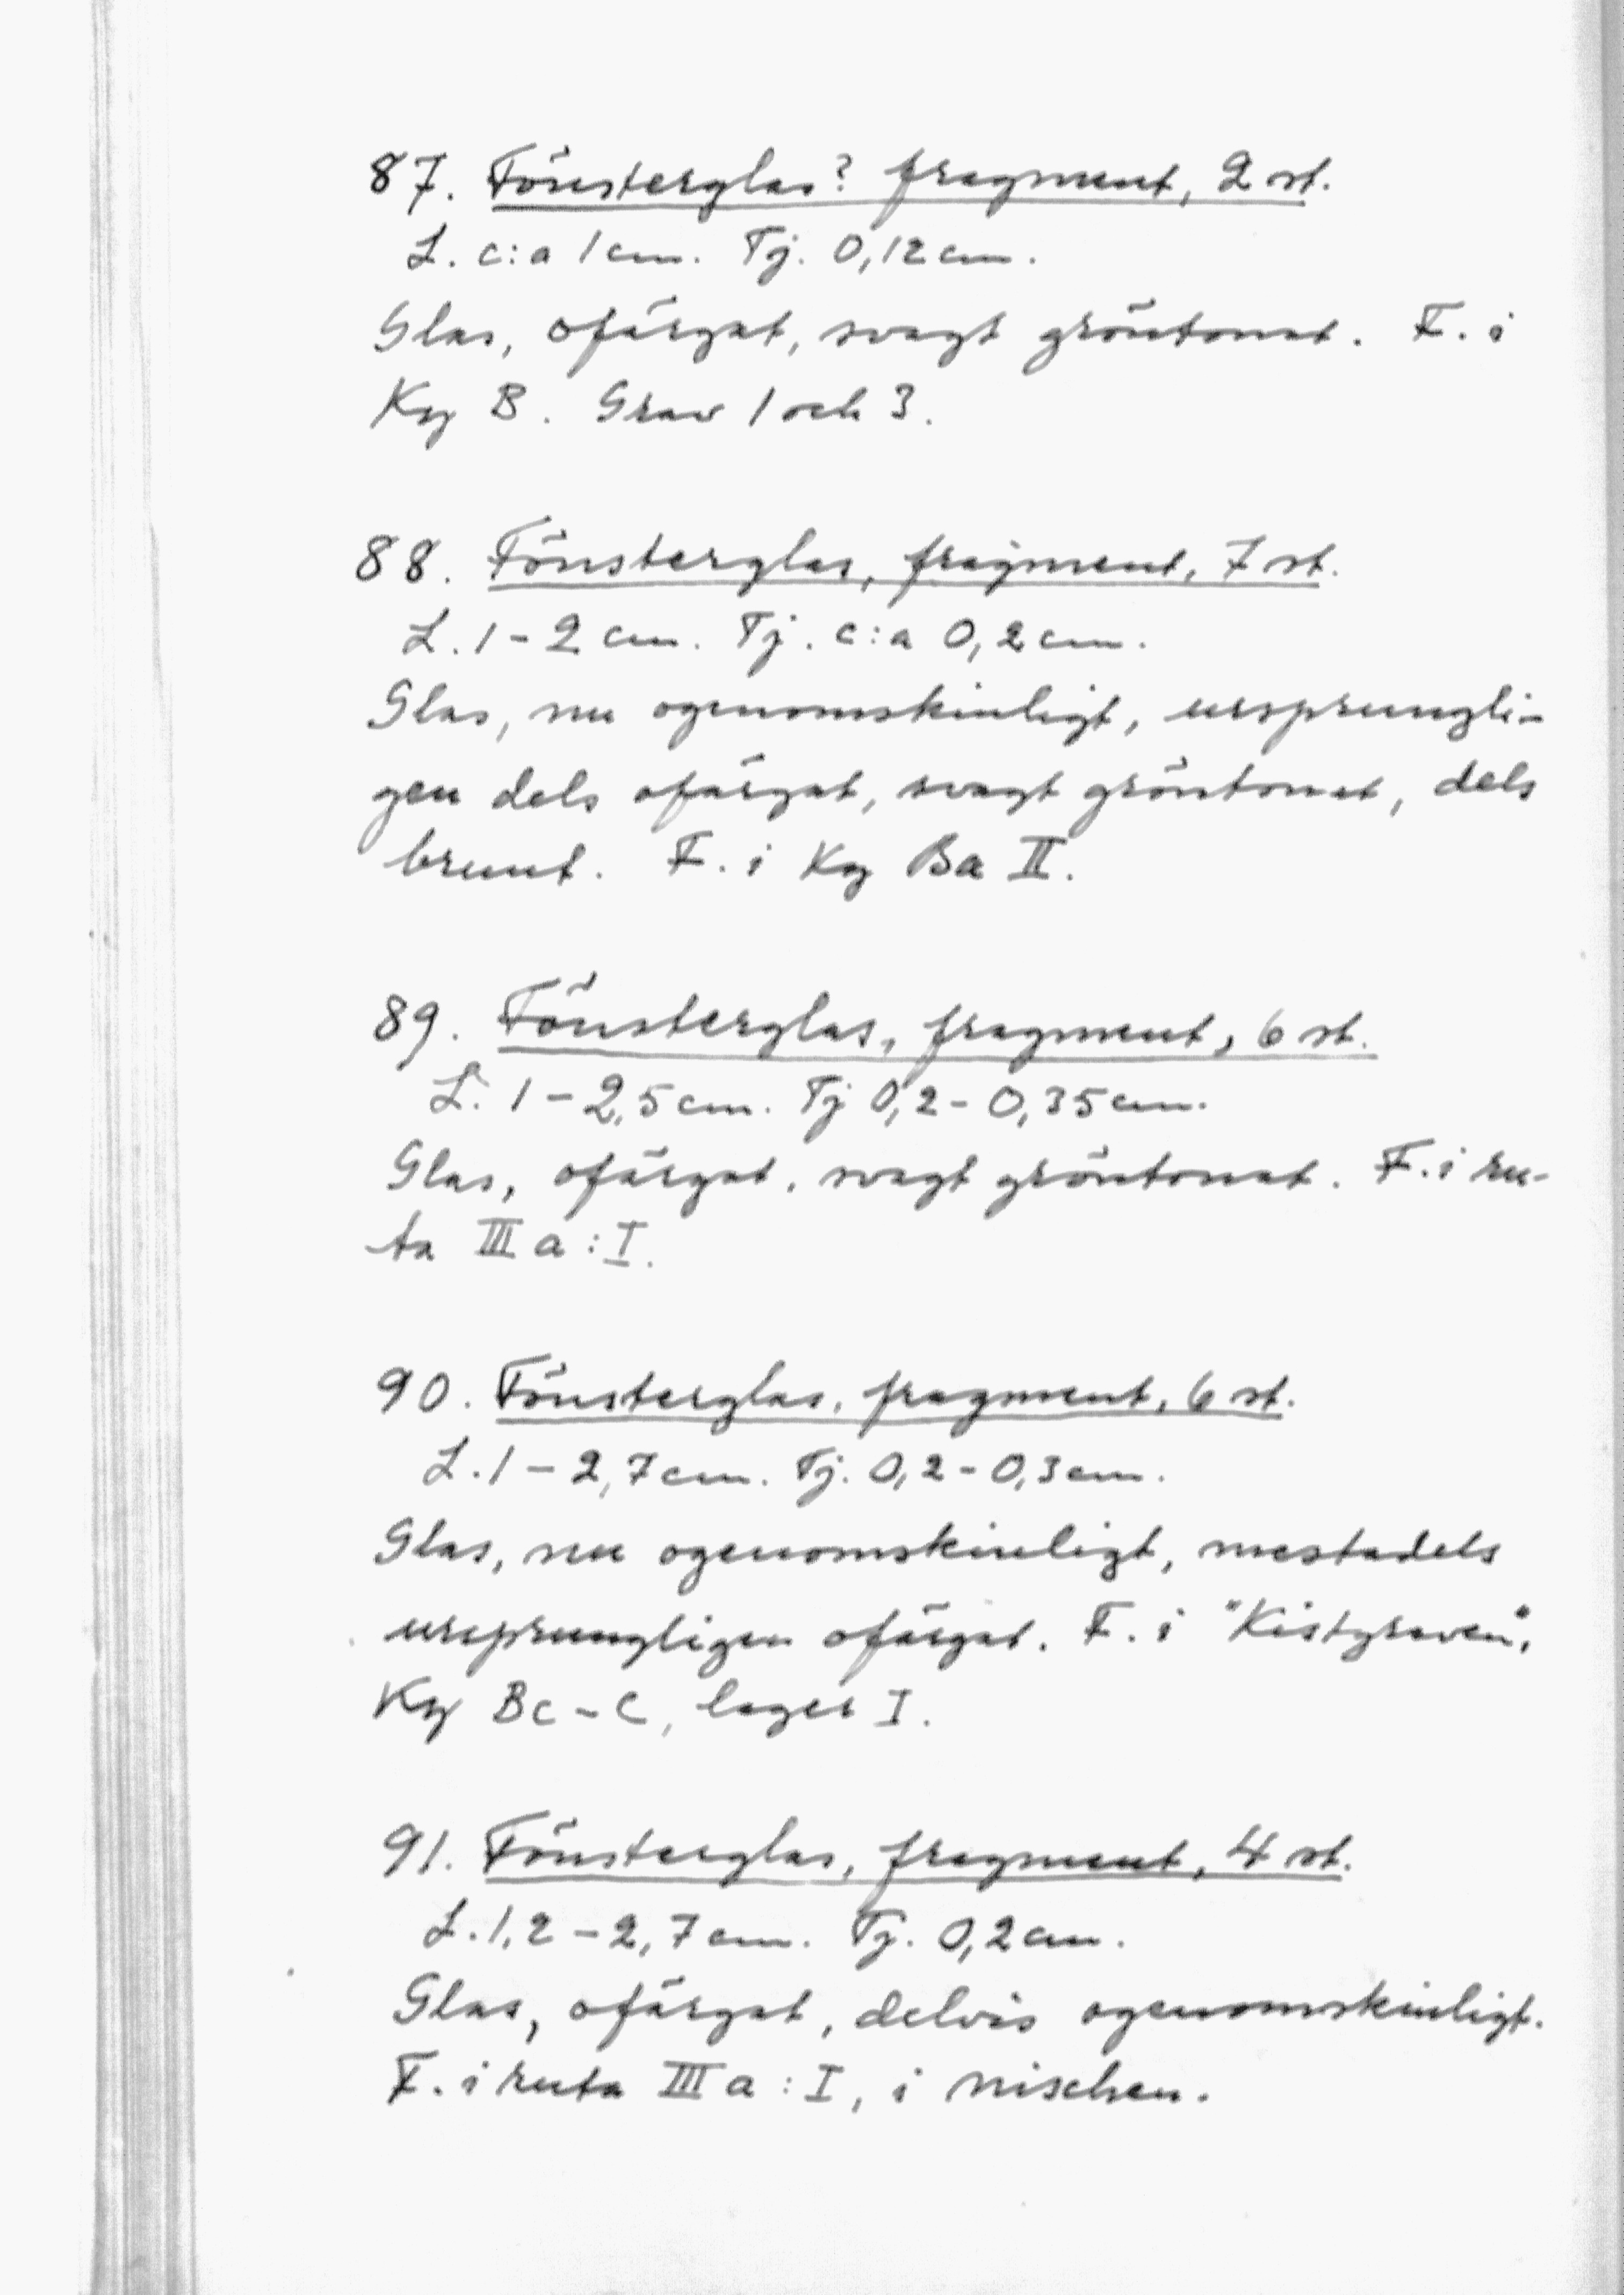 87. Fönsterglas? fragment, 2 st.
L. c:a 1 cm. Tj. 0,12 cm.
Glas, ofärgat, svagt gröntonat. F. i
Kg B. Grav 1 och 3.
88. Fönsterglas, fragment, 7 st.
L. 1-2 cm. Tj. c:a 0,2 cm.
Glas, nu ogenomskinligt, ursprungli-
gen dels ofärgat, svagt gröntonat, dels
brunt. F. i Kg Ba II.
89. Fönsterglas, fragment, 6 st.
L. 1-2,5 cm. Tj 0,2-0,35 cm.
Glas, ofärgat, svagt gröntonat. F. i ru-
ta III a:I.
90. Fönsterglas, fragment, 6 st.
L. 1-2,7 cm. Tj. 0,2-0,3 cm.
Glas, nu ogenomskinligt, mestadels
ursprungligen ofärgat. F. i "Kistgraven",
Kg Bc-C, lager I.
91. Fönsterglas, fragment, 4 st.
L. 1,2-2,7 cm. Tj. 0,2 cm.
Glas, ofärgat, delvis ogenomskinligt.
F. i ruta III a:I, i nischen.